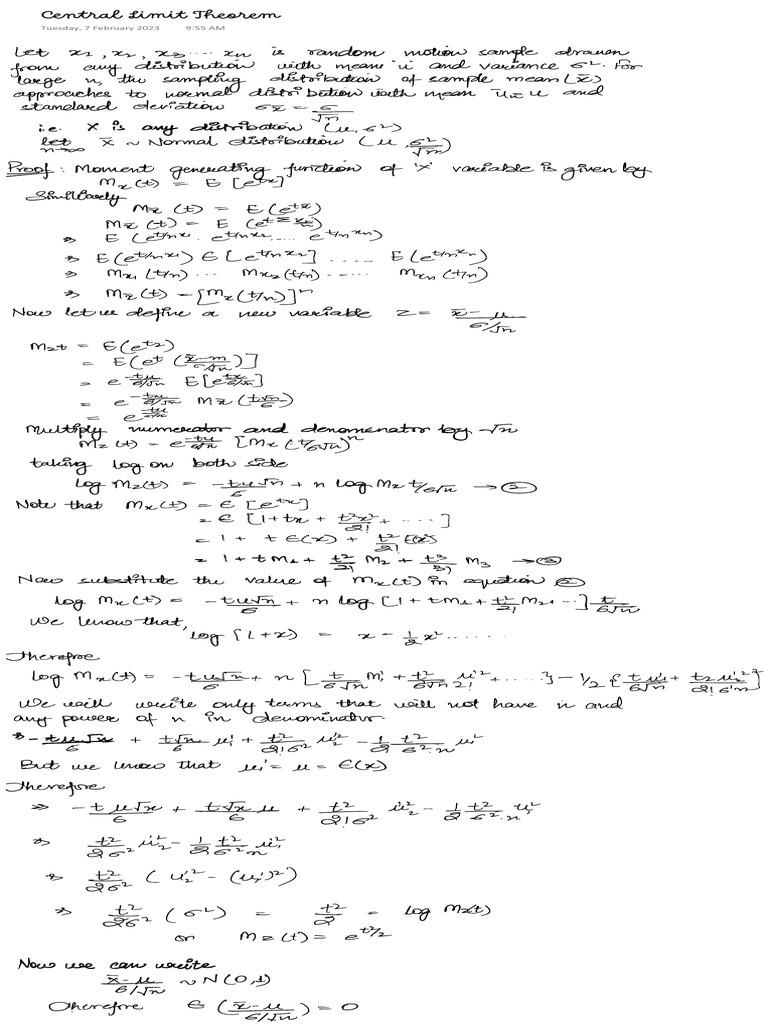 Central Limit Theorem
Tuesday, 7 February 2023 9:55 AM
Let x1, x2, x3 .... xn is random motion sample drawn
from any distribution with means u and variance σ². For
large n, the sampling distribution of sample mean (x̄)
approaches to normal distribution with mean ū = u and
standard deviation σx̄ = σ/√n
i.e. X is any distribution (u, σ²)
let n→∞ x̄ ~ Normal distribution (u, σ²/√n)
Proof: Moment generating function of 'x' variable is given by
Mx(t) = E[e^tx]
Similarly
Mx̄(t) = E(e^tx̄)
Mx̄(t) = E(e^t
⇒ E(e^t/n x1 . e^t/n x2 ..... e^t/n xn)
⇒ E(e^t/n x1) E[e^t/n x2] ..... E(e^t/n xn)
⇒ Mx1(t/n) ... Mx2(t/n) ..... Mxn(t/n)
⇒ Mx̄(t) = [Mx(t/n)]^n
Now let us define a new variable Z = x̄-u / σ/√n
Mzt = E(e^tz)
= E(e^t (x̄-m / σ/√n)]
= e^-tu/σ/√n E[e^tx̄/σ/√n]
= e^-tu/σ/√n Mx̄(t√n/σ)
= e^-tu/σ/√n
Multiply numerator and denomenator by √n
Mz(t) = e^-tu/σ/√n [Mx(t/σ√n)]^n
taking log on both side
log Mz(t) = -tu√n/σ + n log Mx t/σ√n → ②
Note that Mx(t) = E[e^tx]
= E[1+tx + t²x²/2! + ....]
= 1 + t E(x) + t²/2! E(x²)
= 1 + tM1 + t²/2! M2 + t³/3! M3 → ③
Now substitute the value of Mx(t) in equation ②
log Mx(t) = -tu√n/σ + n log [1 + tM1 + t²/2! M2 + ..] t/σ√n
We know that,
log [1+x) = x - 1/2 x² ......
Therefore
log Mx(t) = -tu√n/σ + n [t/σ√n M' + t²/σ√n 2! u'² + .....} - 1/2 {tu'1/σ√n + t2 u'2²/2! σ²n}²]
We will write only terms that will not have n and
any power of n in denominator
⇒ -tu√n/σ + t√n/σ u'1 + t²/2!σ² u'2² - 1/2 t²/σ².n u'²
But we know that u'1 = u = E(x)
Therefore
⇒ -tu√n/σ + t√n u/σ + t²/2!σ² u'2² - 1/2 t²/σ².n u'1²
⇒ t²/2σ² u'2² - 1/2 t²/σ²n u'1²
⇒ t²/2σ² (u'2² - (u'1)²)
⇒ t²/2σ² (σ²) = t²/2 = log Mz(t)
or Mz(t) = e^t²/2
Now we can write
x̄-u / σ/√n ~ N(0,1)
Therefore E(x̄-u / σ/√n) = 0